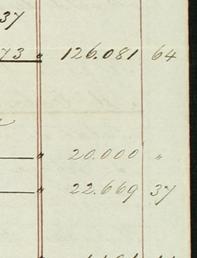 37
73 " 126.081 64
20.000 "
22.669 37